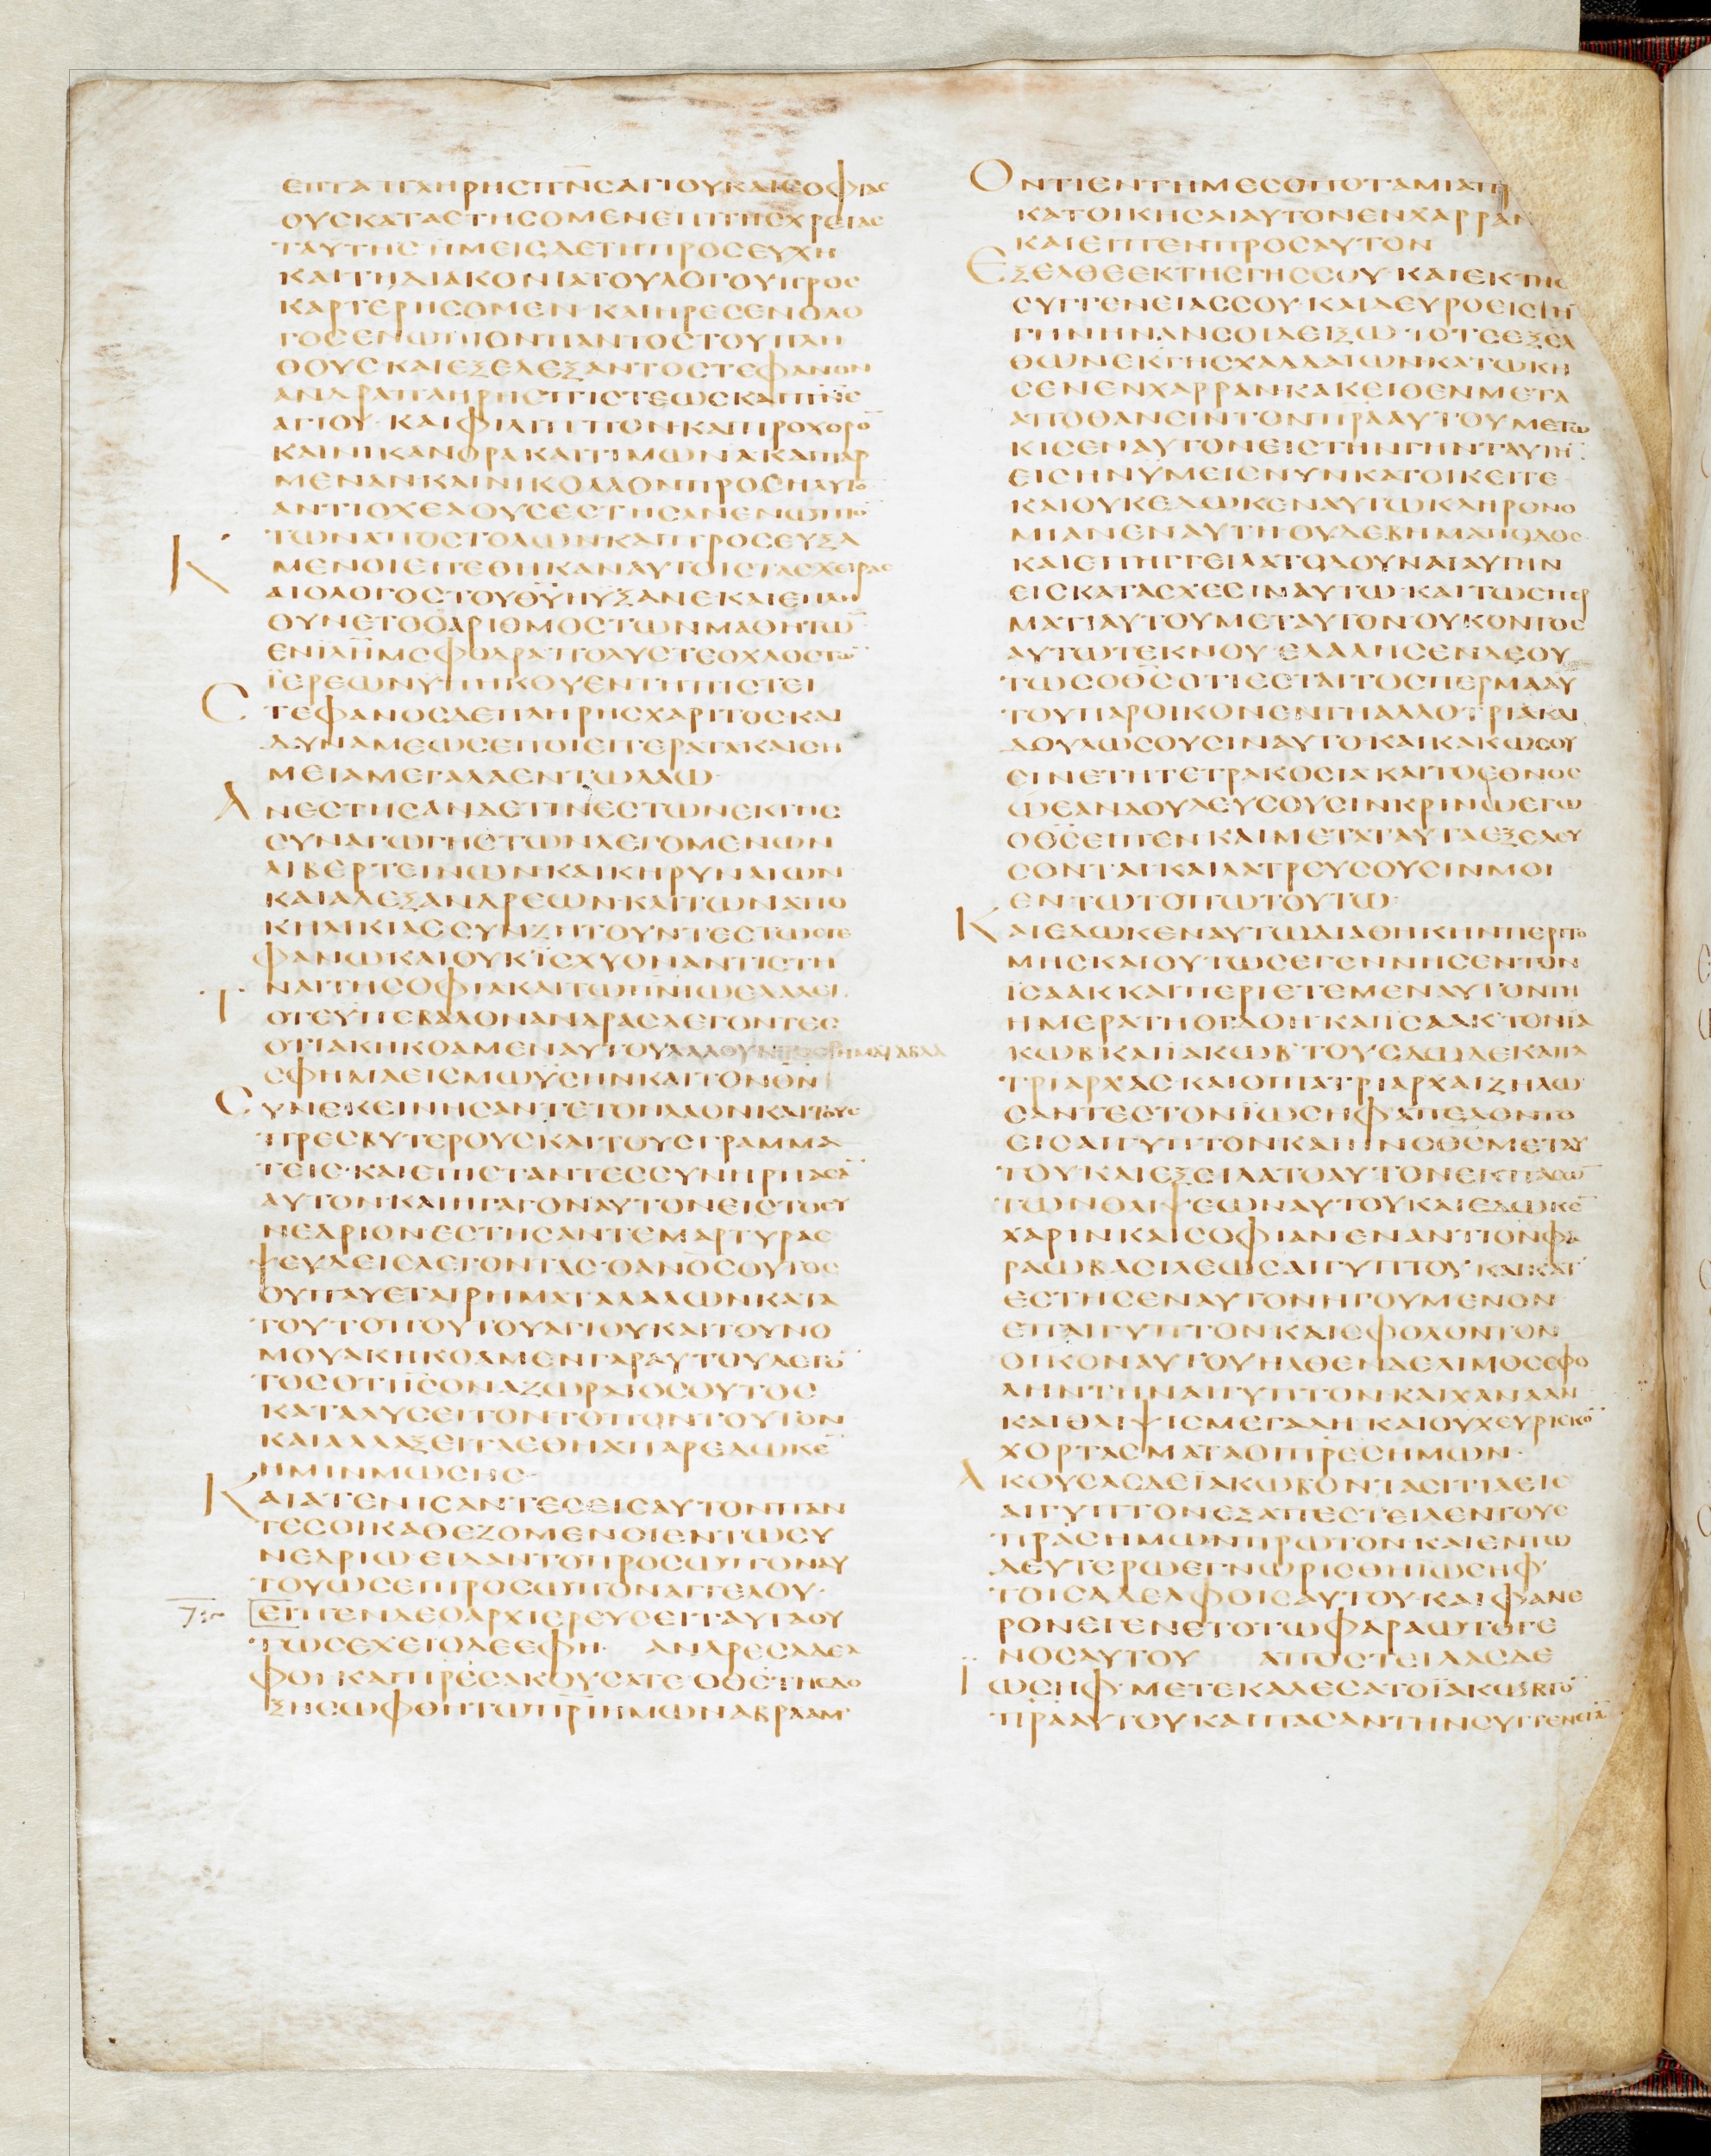 ΕΠΤΑ ΠΛΗΡΗΣ ΠΝΣ ΑΓΙΟΥ ΚΑΙ ΣΟΦΙΑΣ
ΟΥΣ ΚΑΤΑΣΤΗΣΟΜΕΝ ΕΠΙ ΤΗΣ ΧΡΕΙΑΣ
ΤΑΥΤΗΣ ΗΜΕΙΣ ΔΕ ΤΗ ΠΡΟΣΕΥΧΗ
ΚΑΙ ΤΗ ΔΙΑΚΟΝΙΑ ΤΟΥ ΛΟΓΟΥ ΠΡΟΣ
ΚΑΡΤΕΡΗΣΟΜΕΝ· ΚΑΙ ΗΡΕΣΕΝ Ο ΛΟ
ΓΟΣ ΕΝΩΠΙΟΝ ΠΑΝΤΟΣ ΤΟΥ ΠΛΗ
ΘΟΥΣ ΚΑΙ ΕΞΕΛΕΞΑΝΤΟ ΣΤΕΦΑΝΟΝ
ΑΝΔΡΑ ΠΛΗΡΗΣ ΠΙΣΤΕΩΣ ΚΑΙ ΠΝΣ
ΑΓΙΟΥ· ΚΑΙ ΦΙΛΙΠΠΟΝ ΚΑΙ ΠΡΟΧΟΡΟ̅
ΚΑΙ ΝΙΚΑΝΟΡΑ ΚΑΙ ΤΙΜΩΝΑ ΚΑΙ ΠΑΡ
ΜΕΝΑΝ ΚΑΙ ΝΙΚΟΛΑΟΝ ΠΡΟΣΗΛΥΤΟ̅
ΑΝΤΙΟΧΕΑ ΟΥΣ ΕΣΤΗΣΑΝ ΕΝΩΠΙΟ̅
ΤΩΝ ΑΠΟΣΤΟΛΩΝ· ΚΑΙ ΠΡΟΣΕΥΞΑ
ΜΕΝΟΙ ΕΠΕΘΗΚΑΝ ΑΥΤΟΙΣ ΤΑΣ ΧΕΙΡΑΣ
ΚΑΙ Ο ΛΟΓΟΣ ΤΟΥ ΘΥ ΗΥΞΑΝΕ· ΚΑΙ ΕΠΛΗ
ΘΥΝΕΤΟ Ο ΑΡΙΘΜΟΣ ΤΩΝ ΜΑΘΗΤΩ̅
ΕΝ ΙΛΗΜ ΣΦΟΔΡΑ· ΠΟΛΥΣ ΤΕ ΟΧΛΟΣ ΤΩ̅
ΪΕΡΕΩΝ ΥΠΗΚΟΥΕΝ ΤΗ ΠΙΣΤΕΙ
ΣΤΕΦΑΝΟΣ ΔΕ ΠΛΗΡΗΣ ΧΑΡΙΤΟΣ ΚΑΙ
ΔΥΝΑΜΕΩΣ ΕΠΟΙΕΙ ΤΕΡΑΤΑ ΚΑΙ ΣΗ
ΜΕΙΑ ΜΕΓΑΛΑ ΕΝ ΤΩ ΛΑΩ·
ΑΝΕΣΤΗΣΑΝ ΔΕ ΤΙΝΕΣ ΤΩΝ ΕΚ ΤΗΣ
ΣΥΝΑΓΩΓΗΣ ΤΩΝ ΛΕΓΟΜΕΝΩΝ
ΛΙΒΕΡΤΕΙΝΩΝ· ΚΑΙ ΚΗΡΥΝΑΙΩΝ
ΚΑΙ ΑΛΕΞΑΝΔΡΕΩΝ· ΚΑΙ ΤΩΝ ΑΠΟ
ΚΗΛΙΚΙΑΣ ΣΥΝΖΗΤΟΥΝΤΕΣ ΤΩ ΣΤΕ
ΦΑΝΩ ΚΑΙ ΟΥΚ ΪΣΧΥΟΝ ΑΝΤΙΣΤΗ
ΝΑΙ ΤΗ ΣΟΦΙΑ ΚΑΙ ΤΩ ΠΝΙ Ω ΕΛΑΛΕΙ·
ΤΟΤΕ ΫΠΕΒΑΛΟΝ ΑΝΔΡΑΣ ΛΕΓΟΝΤΕΣ
ΟΤΙ ΑΚΗΚΟΑΜΕΝ ΑΥΤΟΥ ΛΑΛΟΥΝΤΟΣ ΡΗΜΑΤΑ ΒΛΑ
ΣΦΗΜΑ ΕΙΣ ΜΩΫΣΗΝ ΚΑΙ ΤΟΝ ΘΝ
ΣΥΝΕΚΕΙΝΗΣΑΝ ΤΕ ΤΟΝ ΛΑΟΝ ΚΑΙ ΤΟΥΣ
ΠΡΕΣΒΥΤΕΡΟΥΣ ΚΑΙ ΤΟΥΣ ΓΡΑΜΜΑ
ΤΕΙΣ· ΚΑΙ ΕΠΙΣΤΑΝΤΕΣ ΣΥΝΗΡΠΑΣΑ̅
ΑΥΤΟΝ· ΚΑΙ ΗΓΑΓΟΝ ΑΥΤΟΝ ΕΙΣ ΤΟ ΣΥ
ΝΕΔΡΙΟΝ ΕΣΤΗΣΑΝ ΤΕ ΜΑΡΤΥΡΑΣ
ΨΕΥΔΕΙΣ ΛΕΓΟΝΤΑΣ· Ο ΑΝΟΣ ΟΥΤΟΣ
ΟΥ ΠΑΥΕΤΑΙ ΡΗΜΑΤΑ ΛΑΛΩΝ ΚΑΤΑ
ΤΟΥ ΤΟΠΟΥ ΤΟΥ ΑΓΙΟΥ ΚΑΙ ΤΟΥ ΝΟ
ΜΟΥ ΑΚΗΚΟΑΜΕΝ ΓΑΡ ΑΥΤΟΥ ΛΕΓΟ̅
ΤΟΣ ΟΤΙ ΙΣ Ο ΝΑΖΩΡΑΙΟΣ ΟΥΤΟΣ
ΚΑΤΑΛΥΣΕΙ ΤΟΝ ΤΟΠΟΝ ΤΟΥΤΟΝ
ΚΑΙ ΑΛΛΑΞΕΙ ΤΑ ΕΘΗ Α ΠΑΡΕΔΩΚΕ̅
ΗΜΙΝ ΜΩΣΗΣ·
ΚΑΙ ΑΤΕΝΙΣΑΝΤΕΣ ΕΙΣ ΑΥΤΟΝ ΠΑΝ
ΤΕΣ ΟΙ ΚΑΘΕΖΟΜΕΝΟΙ ΕΝ ΤΩ ΣΥ
ΝΕΔΡΙΩ· ΕΙΔΑΝ ΤΟ ΠΡΟΣΩΠΟΝ ΑΥ
ΤΟΥ ΩΣΕΙ ΠΡΟΣΩΠΟΝ ΑΓΓΕΛΟΥ·
ΕΙΠΕΝ ΔΕ Ο ΑΡΧΙΕΡΕΥΣ ΕΙ ΤΑΥΤΑ ΟΥ
ΤΩΣ ΕΧΕΙ Ο ΔΕ ΕΦΗ· ΑΝΔΡΕΣ ΑΔΕΛ
ΦΟΙ· ΚΑΙ ΠΡΕΣ ΑΚΟΥΣΑΤΕ· Ο ΘΣ ΤΗΣ ΔΟ
ΞΗΣ ΩΦΘΗ ΤΩ ΠΡΙ ΗΜΩΝ ΑΒΡΑΑΜ·
ΟΝΤΙ ΕΝ ΤΗ ΜΕΣΟΠΟΤΑΜΙΑ ΠΡ
ΚΑΤΟΙΚΗΣΑΙ ΑΥΤΟΝ ΕΝ ΧΑΡΡΑΝ
ΚΑΙ ΕΙΠΕΝ ΠΡΟΣ ΑΥΤΟΝ
ΕΞΕΛΘΕ ΕΚ ΤΗΣ ΓΗΣ ΣΟΥ· ΚΑΙ ΕΚ ΤΗΣ
ΣΥΓΓΕΝΕΙΑΣ ΣΟΥ· ΚΑΙ ΔΕΥΡΟ ΕΙΣ ΤΗ̅
ΓΗΝ ΗΝ ΑΝ ΣΟΙ ΔΕΙΞΩ· ΤΟΤΕ ΕΞΕΛ
ΘΩΝ ΕΚ ΓΗΣ ΧΑΛΔΑΙΩΝ· ΚΑΤΩΚΗ
ΣΕΝ ΕΝ ΧΑΡΡΑΝ· ΚΑΚΕΙΘΕΝ ΜΕΤΑ
ΑΠΟΘΑΝΕΙΝ ΤΟΝ ΠΡΑ ΑΥΤΟΥ ΜΕΤΩ
ΚΙΣΕΝ ΑΥΤΟΝ ΕΙΣ ΤΗΝ ΓΗΝ ΤΑΥΤΗ̅
ΕΙΣ ΗΝ ΥΜΕΙΣ ΝΥΝ ΚΑΤΟΙΚΕΙΤΕ
ΚΑΙ ΟΥΚ ΕΔΩΚΕΝ ΑΥΤΩ ΚΛΗΡΟΝΟ
ΜΙΑΝ ΕΝ ΑΥΤΗ ΟΥΔΕ ΒΗΜΑ ΠΟΔΟΣ·
ΚΑΙ ΕΠΗΓΓΕΙΛΑΤΟ ΔΟΥΝΑΙ ΑΥΤΗΝ
ΕΙΣ ΚΑΤΑΣΧΕΣΙΝ ΑΥΤΩ· ΚΑΙ ΤΩ ΣΠΕΡ
ΜΑΤΙ ΑΥΤΟΥ ΜΕΤ ΑΥΤΟΝ· ΟΥΚ ΟΝΤΟΣ
ΑΥΤΩ ΤΕΚΝΟΥ· ΕΛΑΛΗΣΕΝ ΔΕ ΟΥ
ΤΩΣ Ο ΘΣ ΟΤΙ ΕΣΤΑΙ ΤΟ ΣΠΕΡΜΑ ΑΥ
ΤΟΥ ΠΑΡΟΙΚΟΝ ΕΝ ΓΗ ΑΛΛΟΤΡΙΑ ΚΑΙ
ΔΟΥΛΩΣΟΥΣΙΝ ΑΥΤΟ· ΚΑΙ ΚΑΚΩΣΟΥ
ΣΙΝ ΕΤΗ ΤΕΤΡΑΚΟΣΙΑ· ΚΑΙ ΤΟ ΕΘΝΟΣ
Ω ΕΑΝ ΔΟΥΛΕΥΣΟΥΣΙΝ ΚΡΙΝΩ ΕΓΩ
Ο ΘΣ ΕΙΠΕΝ· ΚΑΙ ΜΕΤΑ ΤΑΥΤΑ ΕΞΕΛΕΥ
ΣΟΝΤΑΙ· ΚΑΙ ΛΑΤΡΕΥΣΟΥΣΙΝ ΜΟΙ
ΕΝ ΤΩ ΤΟΠΩ ΤΟΥΤΩ·
ΚΑΙ ΕΔΩΚΕΝ ΑΥΤΩ ΔΙΑΘΗΚΗΝ ΠΕΡΙΤΟ
ΜΗΣ ΚΑΙ ΟΥΤΩΣ ΕΓΕΝΝΗΣΕΝ ΤΟΝ
ΪΣΑΑΚ ΚΑΙ ΠΕΡΙΕΤΕΜΕΝ ΑΥΤΟΝ ΤΗ
ΗΜΕΡΑ ΤΗ ΟΓΔΟΗ· ΚΑΙ ΪΣΑΑΚ ΤΟΝ ΙΑ
ΚΩΒ· ΚΑΙ ΙΑΚΩΒ ΤΟΥΣ ΔΩΔΕΚΑ ΠΑ
ΤΡΙΑΡΧΑΣ· ΚΑΙ ΟΙ ΠΑΤΡΙΑΡΧΑΙ ΖΗΛΩ
ΣΑΝΤΕΣ ΤΟΝ ΪΩΣΗΦ ΑΠΕΔΟΝΤΟ
ΕΙΣ ΑΙΓΥΠΤΟΝ· ΚΑΙ ΗΝ Ο ΘΣ ΜΕΤ ΑΥ
ΤΟΥ· ΚΑΙ ΕΞΕΙΛΑΤΟ ΑΥΤΟΝ ΕΚ ΠΑΣΩ̅
ΤΩΝ ΘΛΙΨΕΩΝ ΑΥΤΟΥ ΚΑΙ ΕΔΩΚΕ̅
ΧΑΡΙΝ ΚΑΙ ΣΟΦΙΑΝ ΕΝΑΝΤΙΟΝ ΦΑ
ΡΑΩ ΒΑΣΙΛΕΩΣ ΑΙΓΥΠΤΟΥ· ΚΑΙ ΚΑΤ
ΕΣΤΗΣΕΝ ΑΥΤΟΝ ΗΓΟΥΜΕΝΟΝ
ΕΠ ΑΙΓΥΠΤΟΝ· ΚΑΙ ΕΦ ΟΛΟΝ ΤΟΝ
ΟΙΚΟΝ ΑΥΤΟΥ ΗΛΘΕΝ ΔΕ ΛΙΜΟΣ ΕΦ Ο
ΛΗΝ ΤΗΝ ΑΙΓΥΠΤΟΝ· ΚΑΙ ΧΑΝΑΑΝ
ΚΑΙ ΘΛΙΨΙΣ ΜΕΓΑΛΗ· ΚΑΙ ΟΥΧ ΕΥΡΙΣΚΟ̅
ΧΟΡΤΑΣΜΑΤΑ ΟΙ ΠΡΕΣ ΗΜΩΝ·
ΑΚΟΥΣΑΣ ΔΕ ΪΑΚΩΒ ΟΝΤΑ ΣΙΤΙΑ ΕΙΣ
ΑΙΓΥΠΤΟΝ ΕΞΑΠΕΣΤΕΙΛΕΝ ΤΟΥΣ
ΠΡΑΣ ΗΜΩΝ ΠΡΩΤΟΝ· ΚΑΙ ΕΝ ΤΩ
ΔΕΥΤΕΡΩ ΕΓΝΩΡΙΣΘΗ ΪΩΣΗΦ
ΤΟΙΣ ΑΔΕΛΦΟΙΣ ΑΥΤΟΥ· ΚΑΙ ΦΑΝΕ
ΡΟΝ ΕΓΕΝΕΤΟ ΤΩ ΦΑΡΑΩ ΤΟ ΓΕ
ΝΟΣ ΑΥΤΟΥ ΑΠΟΣΤΕΙΛΑΣ ΔΕ
ΪΩΣΗΦ· ΜΕΤΕΚΑΛΕΣΑΤΟ ΪΑΚΩΒ ΤΟ̅
ΠΡΑ ΑΥΤΟΥ ΚΑΙ ΠΑΣΑΝ ΤΗΝ ΣΥΓΓΕΝΕΙΑ̅